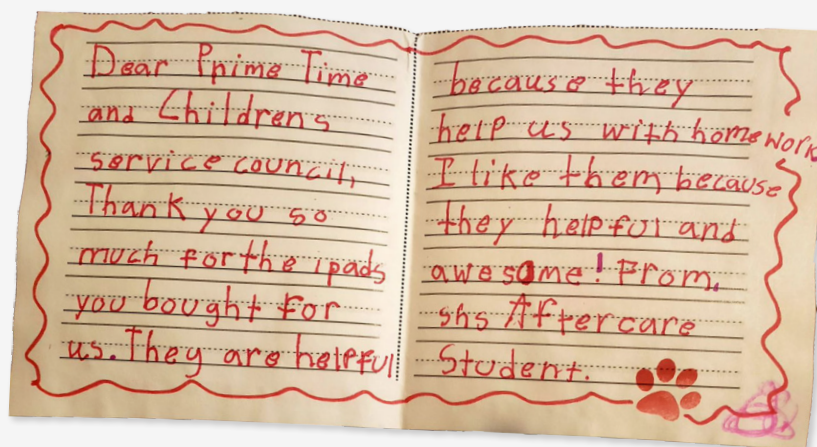 Dear Prime Time
and Childrens
service council,
Thank you so
much for the ipads
you bought for
us. They are helpful
because they
help us with homework
I like them because
they helpful and
awesome! From,
shs Aftercare
Student.